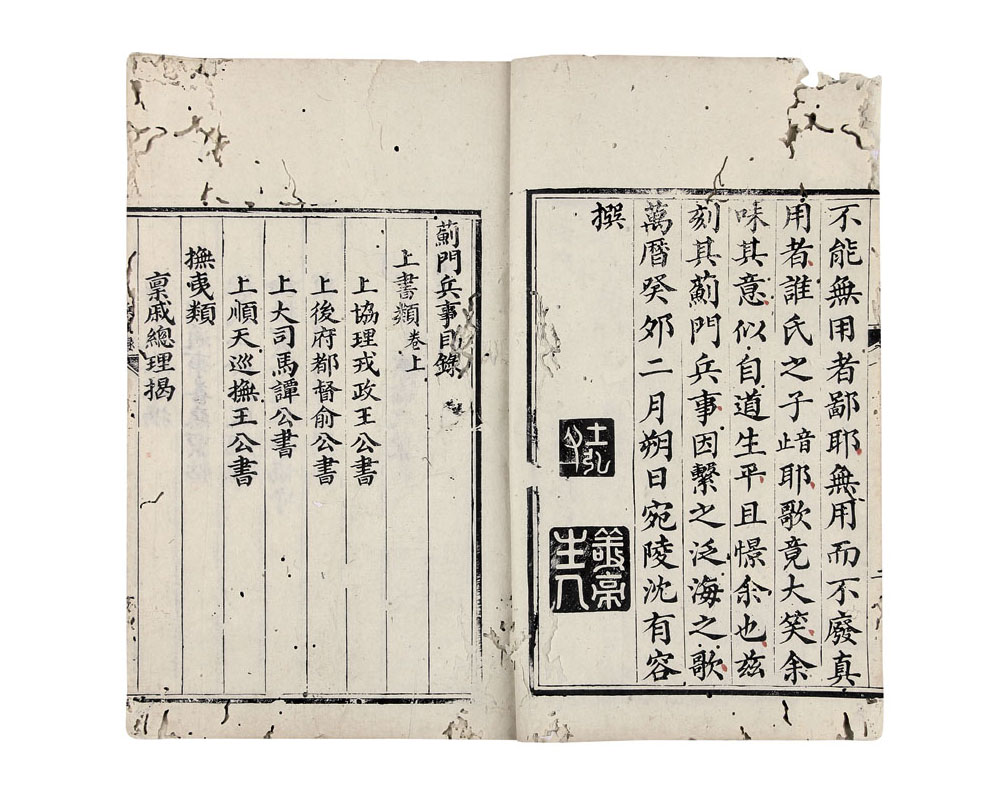 不能無用者鄙耶無用而不廢真
用者誰氏之子喑耶歌竟大笑余
味其意似自道生平且憬余也玆
刻其薊門兵事因繫之泛海之歌
萬曆癸夘二月朔日宛陵沈有容
撰
士弘
薊門兵事目錄
上書類卷上
上協理戎政王公書
上後府都督俞公書
上大司馬譚公書
上順天巡撫王公書
撫夷類
稟戚總理揭